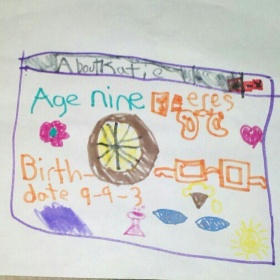 About Katie
Age nine
eres
Birth-
date 9-9-3